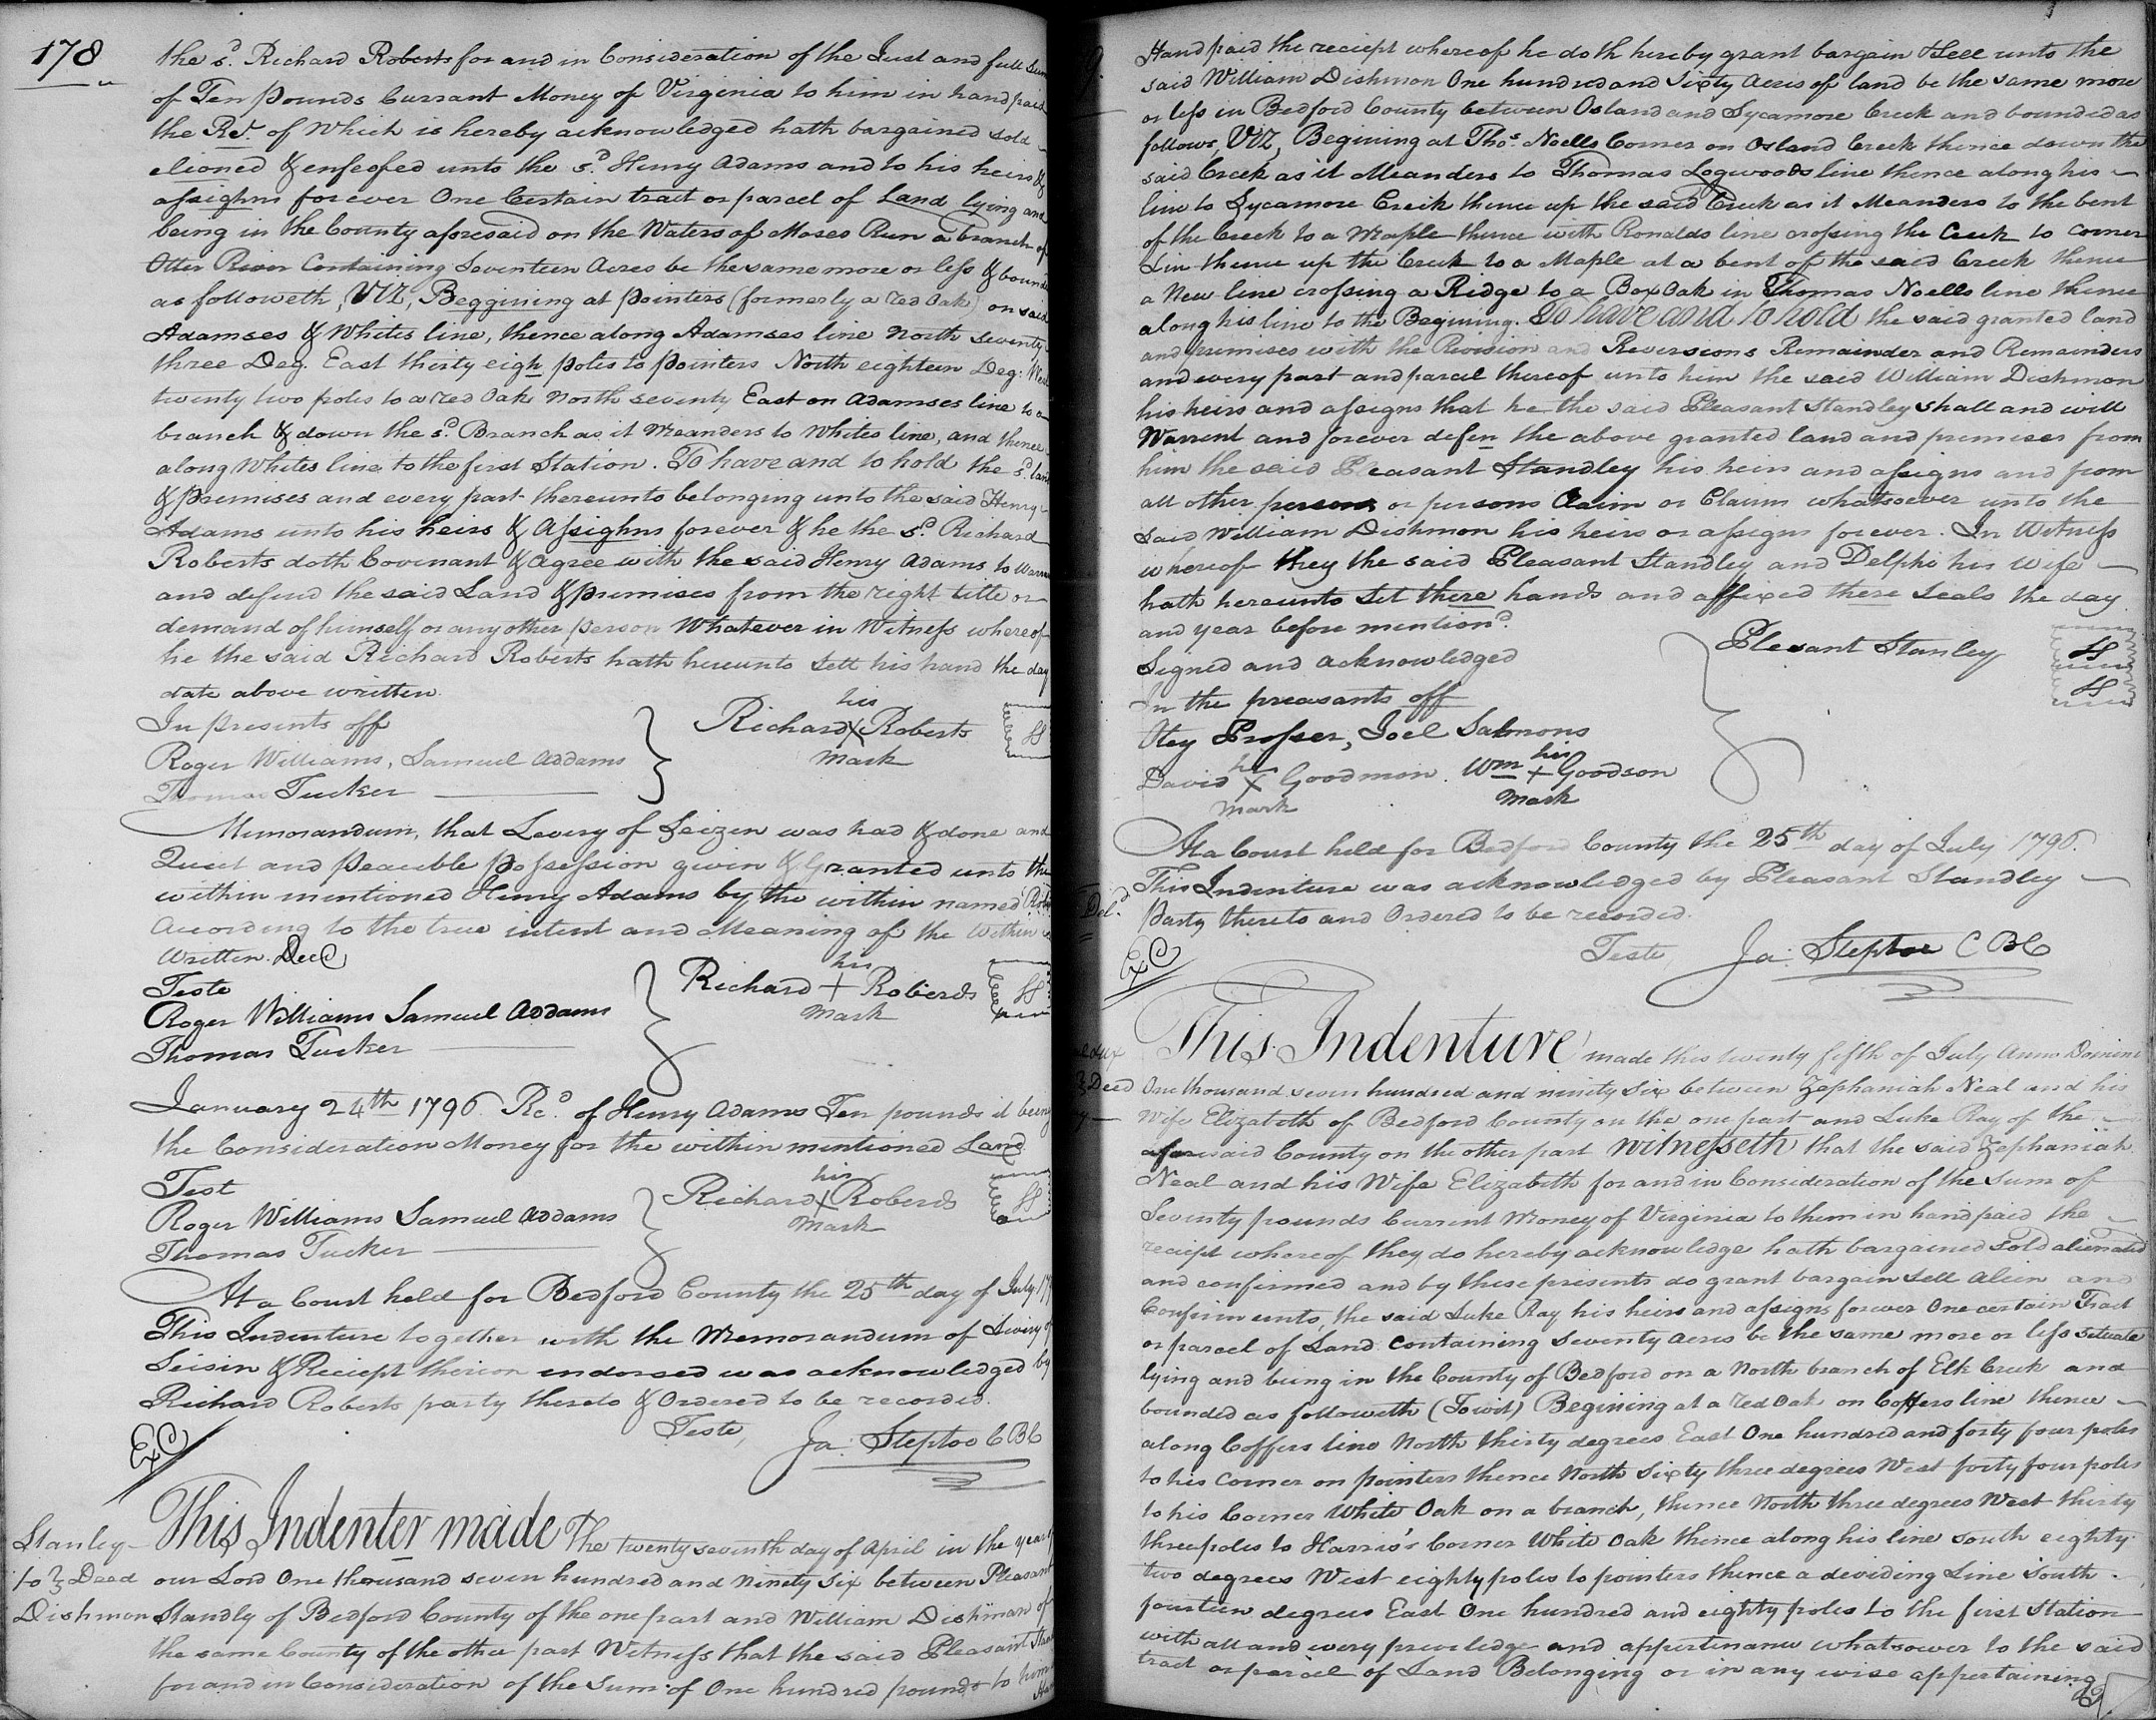 178
the s.d Richard Roberts for and in Consideration of the Just and full Sum
of Ten Pounds Currant Money of Virginia to him in hand paid
the Rct. of Which is hereby acknowledged hath bargained sold
eliened & enfeofed unto the s.d Henry Adams and to his heirs &
assighns forever One Certain tract or parcel of Land lying and
being in the County aforesaid on the Waters of Moses Run a branch of
Otter River Containing Seventeen Acres be the same more or less & bounded
as followeth, VIZ, Beggining at pointers (formerly a red Oak) on said
Adamses & Whites line, thence along Adamses line North Seventy
three Deg. East thirty eigh poles to pointers North eighteen Deg: West
twenty two poles to a red Oak North seventy East on Adamses line to a
branch & down the s.d Branch as it Meanders to Whites line, and thence
along Whites line to the first Station. To have and to hold the s.d land
& premises and every part thereunto belonging unto the said Henry
Adams unto his heirs & Assighns forever & he the s.d Richard
Roberts doth Covenant & Agree with the said Henry Adams to Warrent
and defend the said Land & premises from the right title or
demand of himself or any other person Whatever in Witness whereof
he the said Richard Roberts hath hereunto Sett his hand the day
date above written.
In presents off
Roger Williams, Samuel Addams
Thomas Tucker
his
Richard X Roberts
mark
Memorandum, that Levery of Seizen was had & done and
Quiet and Peacible Possession given & Granted unto the
within mentioned Henry Adams by the within named
According to the true intent and Meaning of the Within
Written Deed
Teste
Roger Williams Samuel Addams
Thomas Tucker
his
Richard + Roberds
mark
January 24th 1796. Rec.d of Henry Adams Ten pounds it being
the Consideration Money for the within mentioned Land
Test
Roger Williams Samuel Addams
Thomas Tucker
his
Richard X Roberds
mark
At a Court held for Bedford County the 25th day of July
This Indenture together with the Memorandum of Livery of
Seisin & Reciept thereon endorsed was acknowledged by
Richard Roberts party thereto & Ordered to be recorded.
Teste, Ja: Steptoe C B C
ExC
Stanley
to } Deed
Dishmon
This Indenter made The twenty seventh day of April in the year
our Lord One thousand seven hundred and Ninety Six between Pleasant
Standly of Bedford County of the one part and William Dishman of
the same County of the other part Witness that the said Pleasant
for and in Consideration of the Sum of One hundred pounds to him
Hand paid the reciept whereof he doth hereby grant bargain & Sell unto the
said William Dishmon One hundred and Sixty Acres of land be the same more
or less in Bedford County between Osland and Sycamore Creek and bounded as
follows, VIZ, Begining at Thos. Noells Corner on Osland Creek thence down the
said Creek as it Meanders to Thomas Logwoods line thence along his
line to Sycamore Creek thence up the said Creek as it Meanders to the bent
of the Creek to a Maple thence with Ronalds line crossing the Creek to corner
Lin thence up the Creek to a Maple at a bent of the said Creek thence
a New line crossing a Ridge to a Box Oak in Thomas Noells line thence
along his line to the Begining. To have and to hold the said granted land
and premises with the Revision and Reversions Remainder and Remainders
and every part and parcel thereof unto him the said William Dishmon
his heirs and assigns that he the said Pleasant Standley shall and will
Warrent and forever defen the above granted land and premises from
him the said Pleasant Standley his heirs and assigns and from
all other person or persons Claim or Claims whatsoever unto the
said William Dishmon his heirs or assigns forever. In Witness
whereof they the said Pleasant Standley and Delphi his Wife
hath hereunto Set there hands and affixed there Seals the day
and year before mention.d
Signed and acknowledged
In the preasants off
Otey Prosser, Joel Salmons
his
David X Goodmon.
mark
his
Wm + Goodson
mark
Plesant Stanley
At a Court held for Bedford County the 25th day of July 1796.
This Indenture was acknowledged by Pleasant Standley
Party thereto and Ordered to be recorded.
Teste, Ja: Steptoe C B C
Del.d
ExC
Deed
This Indenture made this twenty fifth of July Anno Domini
One thousand seven hundred and ninety Six between Zephaniah Neal and his
Wife Elizabeth of Bedford County on the one part and Luke Ray of the
aforesaid County on the other part Witnesseth that the said Zephaniah
Neal and his Wife Elizabeth for and in Consideration of the Sum of
Seventy pounds Current Money of Virginia to them in hand paid the
reciept whereof they do hereby acknowledge hath bargained Sold alienated
and confirmed and by these presents do grant bargain Sell Alien and
Confirm unto the said Luke Ray his heirs and assigns forever One certain Tract
or parcel of Land containing seventy acres be the same more or less situate
lying and being in the County of Bedford on a North branch of Elk Creek and
bounded as followeth (Towit) Begining at a red Oak on Coffers line thence
along Coffers line North thirty degrees East One hundred and forty four poles
to his corner on pointers thence North Sixty three degrees West forty four poles
to his Corner White Oak on a branch, thence North three degrees West thirty
three poles to Harris's Corner White Oak thence along his line South eighty
two degrees West eighty poles to pointers thence a deviding Line South
fourteen degrees East One hundred and eighty poles to the first Station
with all and every previledge and appertinance whatsoever to the said
tract or parcel of Land Belonging or in any wise appertaining